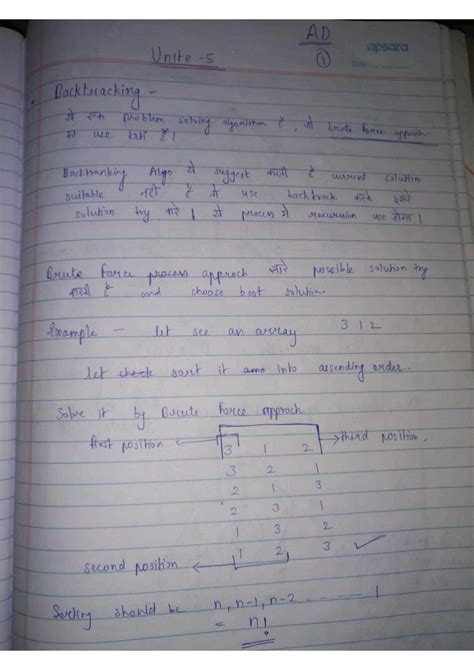 AD
apsara
Unite -5
①
Backtracking -
ये एक problem solving algorithm है, जो brute force approch
का use करता है।
Backtranking Algo ये suggest करती है current solution
suitable नहीं है तो use backtrack करके दूसरे
solution try करे। ये process में recurrsion use होगा।
Brute force process approch सारे possible solution try
करती है and choose best solution.
Example - let see an array 3 1 2
let check sort it into assending order.
Solve it by Brute force approch.
first position third position.
3 1 2
3 2 1
2 1 3
2 3 1
1 3 2
1 2 3 ✓
second position
Sorting should be n, n-1, n-2 ------ 1
= n!